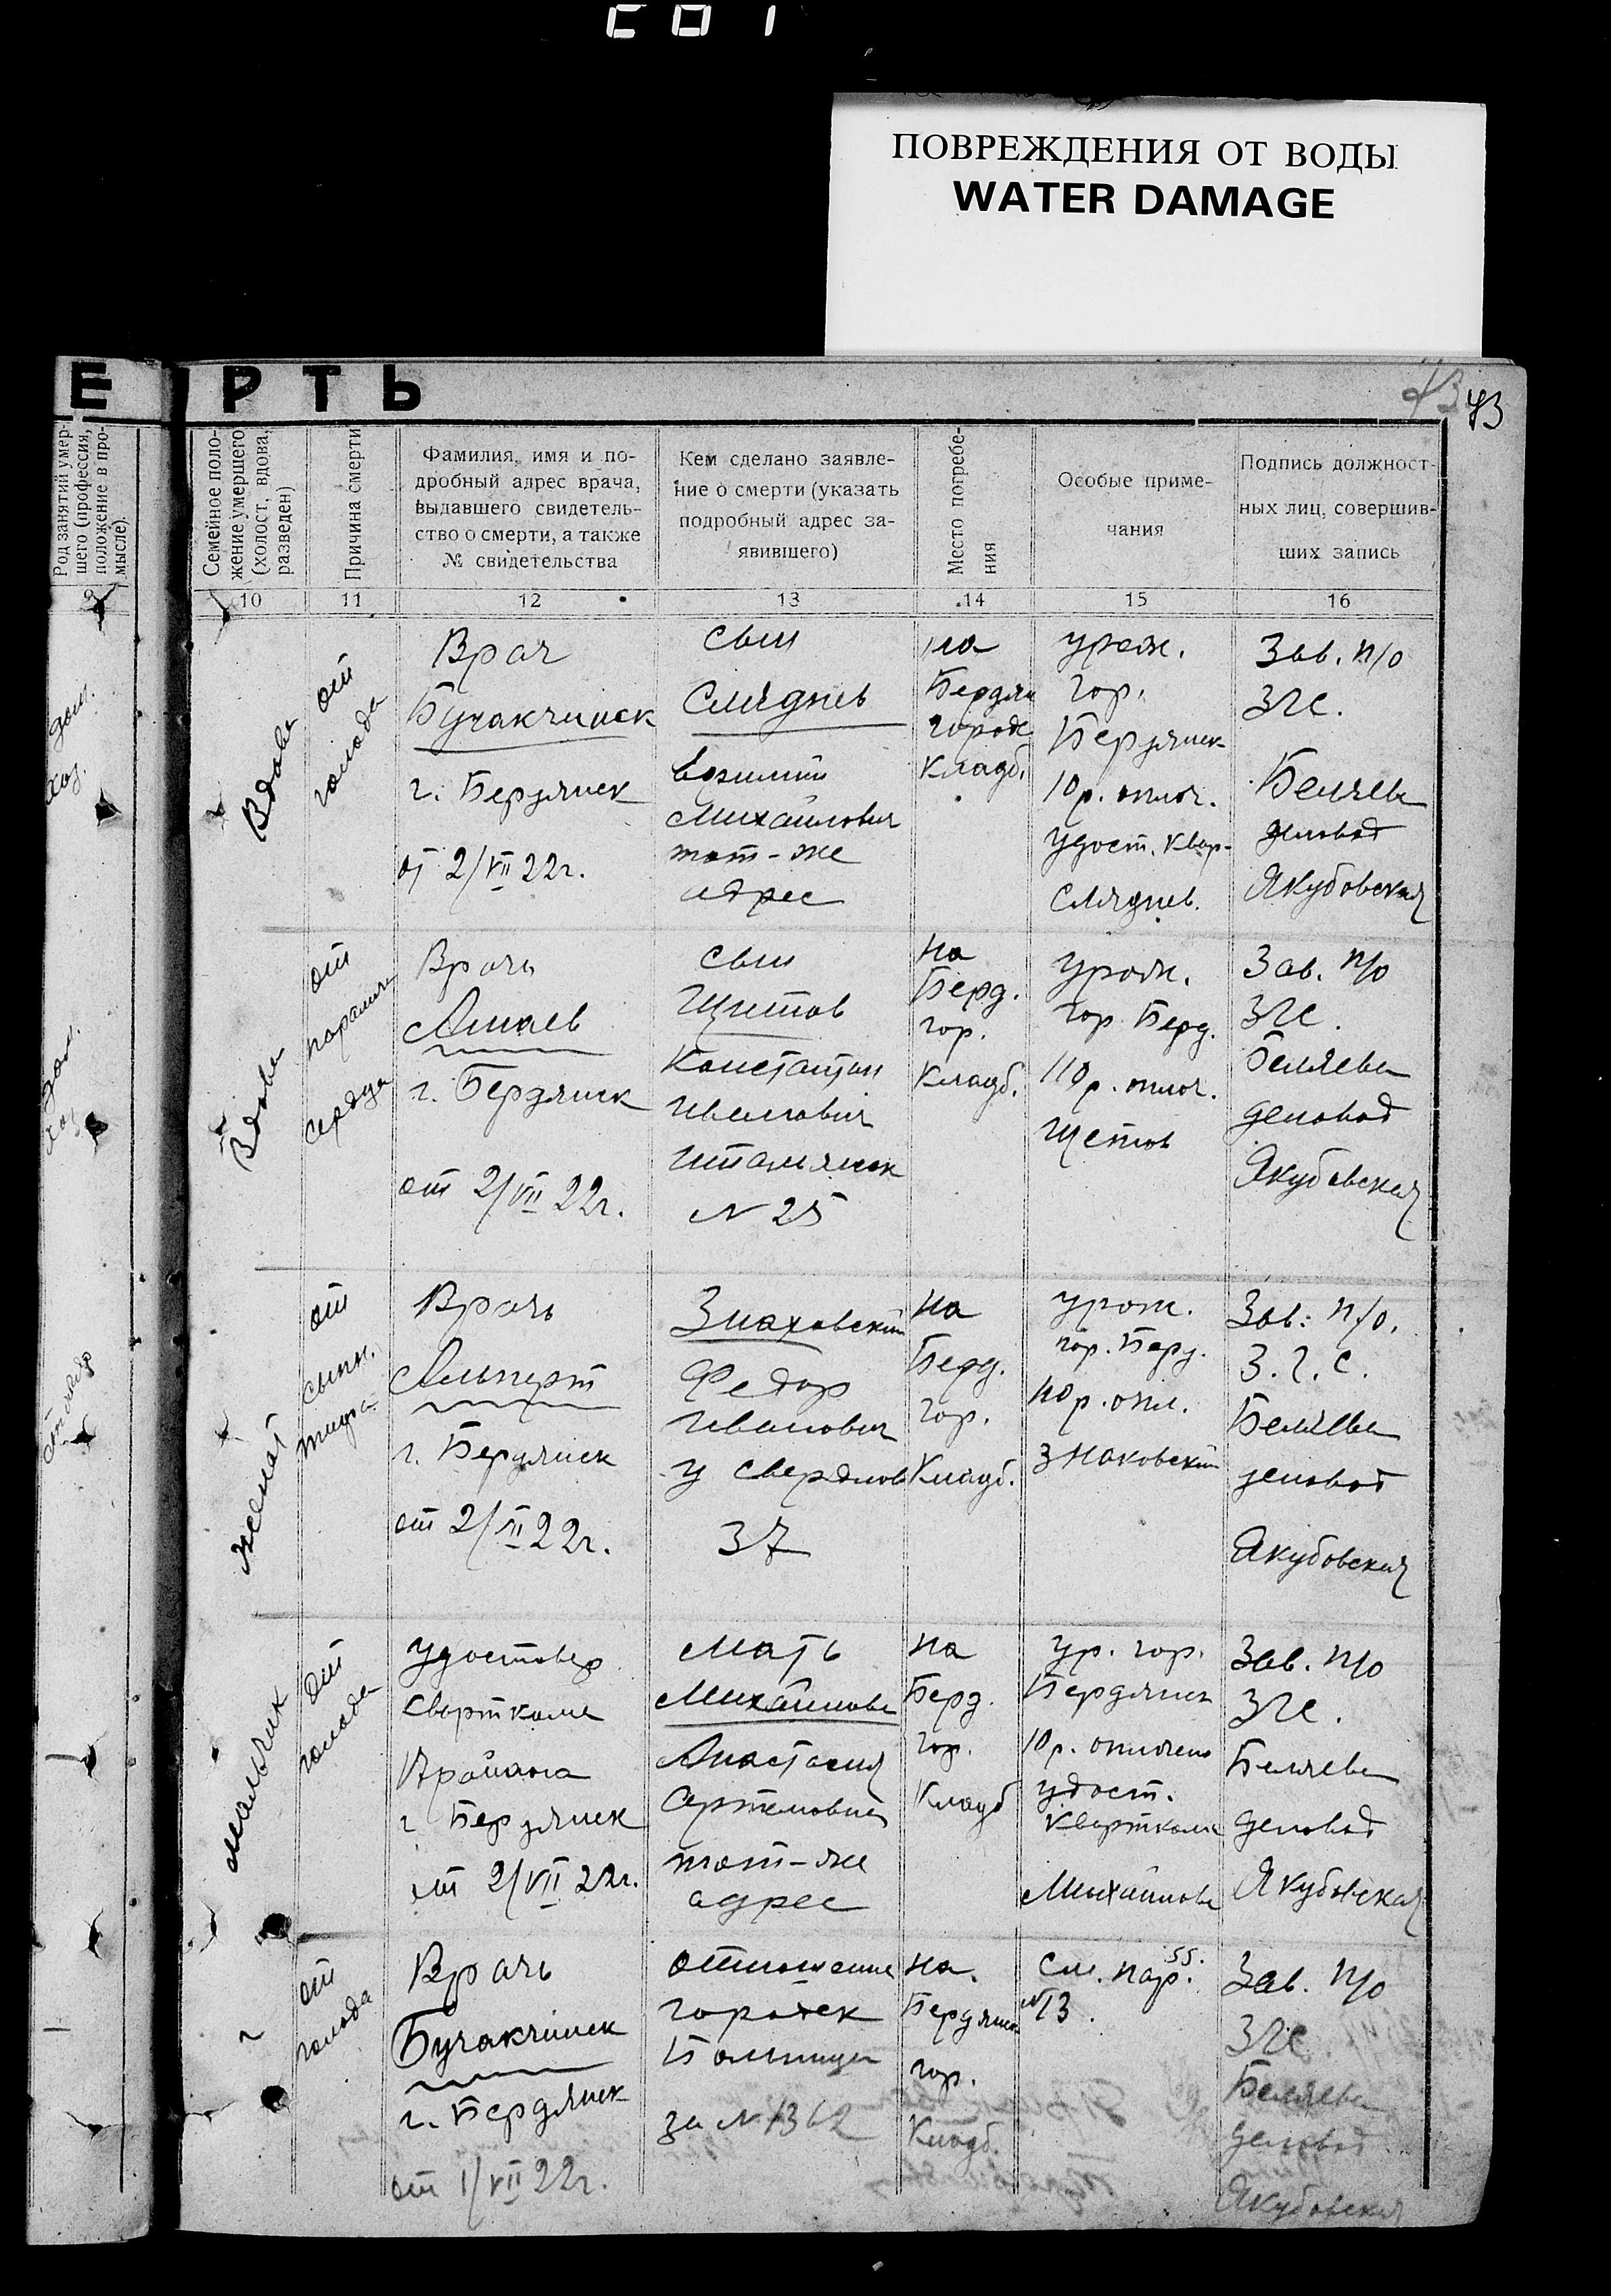 ПОВРЕЖДЕНИЯ ОТ ВОДЫ
WATER DAMAGE
Е РТЬ
43 43
Род занятий умер-
шего (профессия,
положение в про-
мысле).
Семейное поло-
жение умершего
(холост, вдова,
разведен)
Причина смерти
Фамилия, имя и по-
дробный адрес врача,
выдавшего свидетель-
ство о смерти, а также
№ свидетельства
Кем сделано заявле-
ние о смерти (указать
подробный адрес за-
явившего)
Место погребе-
ния
Особые приме-
чания
Подпись должност-
ных лиц, совершив-
ших запись
9 10 11 12 13 14 15 16
дом.
хоз.
Вдова
от
голода
Врач
Бучакчийск
г. Бердянск
от 2/VII 22г.
сын
Следнев
Михайлович
тот-же
адрес
на
Бердян
городс
Кладб.
урож.
гор.
Бердянск
10 р. оплоч.
удост. квар-
Следнев.
Зав. п/о
ЗГС.
Беляева
деловод
Якубовская
дом.
хоз
Вдова
от
паралича
сердца
Врачь
г. Бердянск
от 2/VII 22г.
сын
Щитов
Константин
Иванович
Итальянск
N 25
на
Берд.
гор.
Кладб.
урож.
гор. Берд.
110 р. оплоч.
Щетов
Зав. п/о
ЗГС.
Беляева
деловод
Якубовская
женат
от
сыпн.
тифа
Врачь
Альперт
г. Бердянск
от 2/VII 22г.
Знаховский
Федор
Иванович
у Свердлов
37
на
Берд.
гор.
Кладб.
урож.
гор. Берд.
110 р. опл.
Знаковский
Зав. п/о.
З.Г.С.
Беляева
деловод
Якубовская
мальчик
от
голода
Удостовер
Кварткома
Крайана
г Бердянск
от 2/VII 22г.
Мать
Михайлова
Анастасия
Артемовна
тот-же
адрес
на
Берд.
гор.
Кладб
ур. гор.
Бердянск
10 р. оплочено
удост.
Кварткома
Михайлова
Зав. п/о
ЗГС.
Беляева
деловод
Якубовская
?
от
голода
Врачь
Бучакчийск
г. Бердянск
от 1/VII 22г.
отношение
городск
Больницы
за N 1362
на
Бердянск
гор.
Кладб.
См. пар. 55.
N13.
Зав. п/о
ЗГС
Беляева
деловод
Якубовская